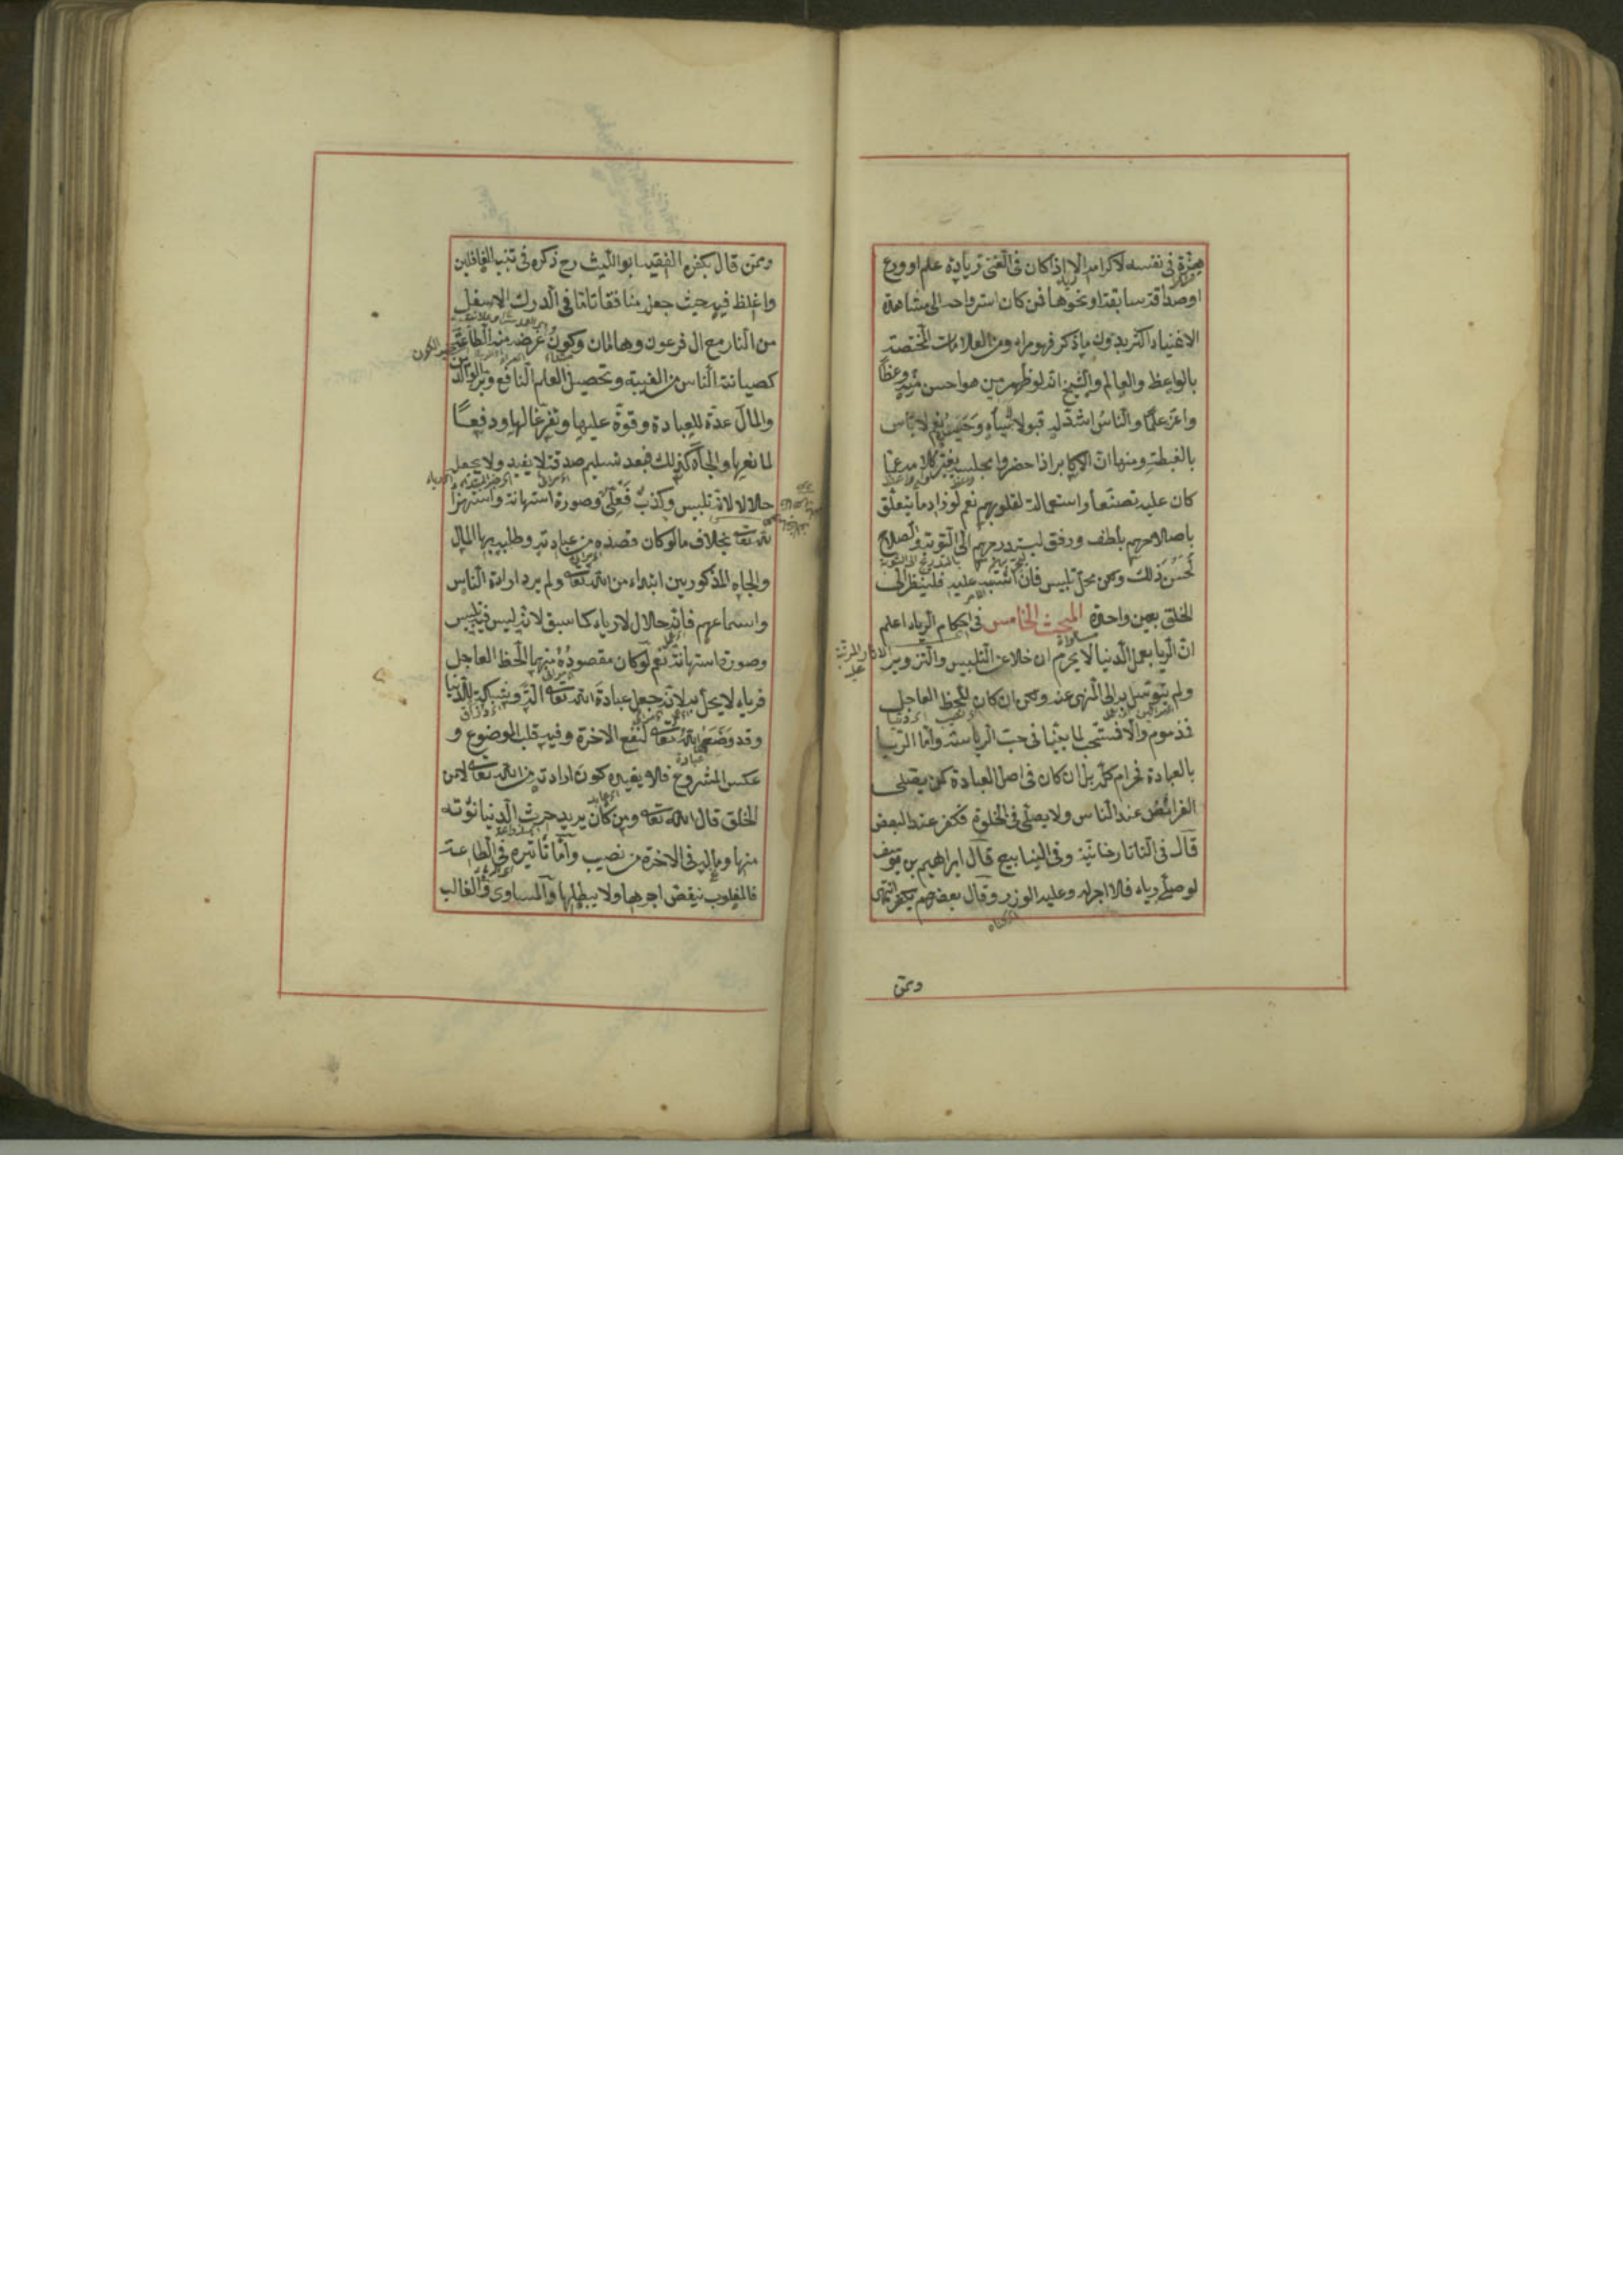 هزة في نفسه لاكرامه الا اذا كان في الغنى زيادة علم او ورع
او صداقة سابقة او نحوها فمن كان استرواحه الى مشاهدة
الاغنياء اكثر بدون ما ذكر فهو مراء ومن العلامات المختصة
بالواعظ والعالم والشيخ انه لو ظهر من هو احسن منه وعظا
واغزر علما والناس اشد له قبولا ساءه وحسده نعم لا باس
بالغبطة ومنها ان الاكابر اذا حضروا مجلسه يغير كلامه عما
كان عليه تصنعا واستمالة لقلوبهم نعم لو زاد ما يتعلق
باصلاحهم بلطف ورفق ليستدرجهم الى التوبة والصلاح
لحسن ذلك ولكن محل تلبيس فان اشتبه عليه فلينظر الى
الخلق بعين واحدة المبحث الخامس في احكام الرياء اعلم
ان الريا بعمل الدنيا لا يحرم ان خلا عن التلبيس والتزوير
ولم يتوسل به الى المنهى عنه ولكن ان كان للحظ العاجل
فمذموم والا فمستحب لما بينا في حب الرياسة واما الريا
بالعبادة فحرام كله بل ان كان في اصل العبادة كمن يصلى
الفرائض عند الناس ولا يصلى في الخلوة فكفر عند البعض
قال في التاتارخانية وفي الينابيع قال ابراهيم بن يوسف
لو صلى رياء فلا اجر له وعليه الوزر وقال بعضهم يكفر انتهى
وممن
وممن قال بكفره الفقيه ابو الليث رح ذكره في تنبيه الغافلين
واغلظ فيه حيث جعله منافقا تاما في الدرك الاسفل
من النار مع ال فرعون وهامان وكون غرضه من الطاعة
كصيانة الناس من الغيبة وتحصيل العلم النافع وبر الوالدين
والمال عدة للعبادة وقوة عليها وتفرغا لها ودفعا
لمانعها والجاه كذلك فبعد تسليم صدقه لا يفيد ولا يجعله
حلالا لانه تلبيس وكذب فعلى وصورة استهانة واستهزأ
لله تعالى بخلاف ما لو كان قصده من عبادته وطلبه بها المال
والجاه المذكورين ابتداء من الله تعالى ولم يرد اراءة الناس
واسماعهم فانه حلال لا رياء كما سبق لانه ليس فيه تلبيس
وصورة استهانة نعم لو كان مقصوده منها الحظ العاجل
فرياء لا يحل به لانه جعل عبادة الله تعالى الة وشبكة للدنيا
وقد وضعها الله تعالى لنفع الاخرة وفيه قلب الموضوع و
عكس المشروع فلا يفيده كون ارادته من الله تعالى لا من
الخلق قال الله تعالى ومن كان يريد حرث الدنيا نؤته
منها وماله في الاخرة من نصيب واما تأثيره في الطاعة
فالمغلوب ينقض اجرها ولا يبطلها والمساوى والغالب